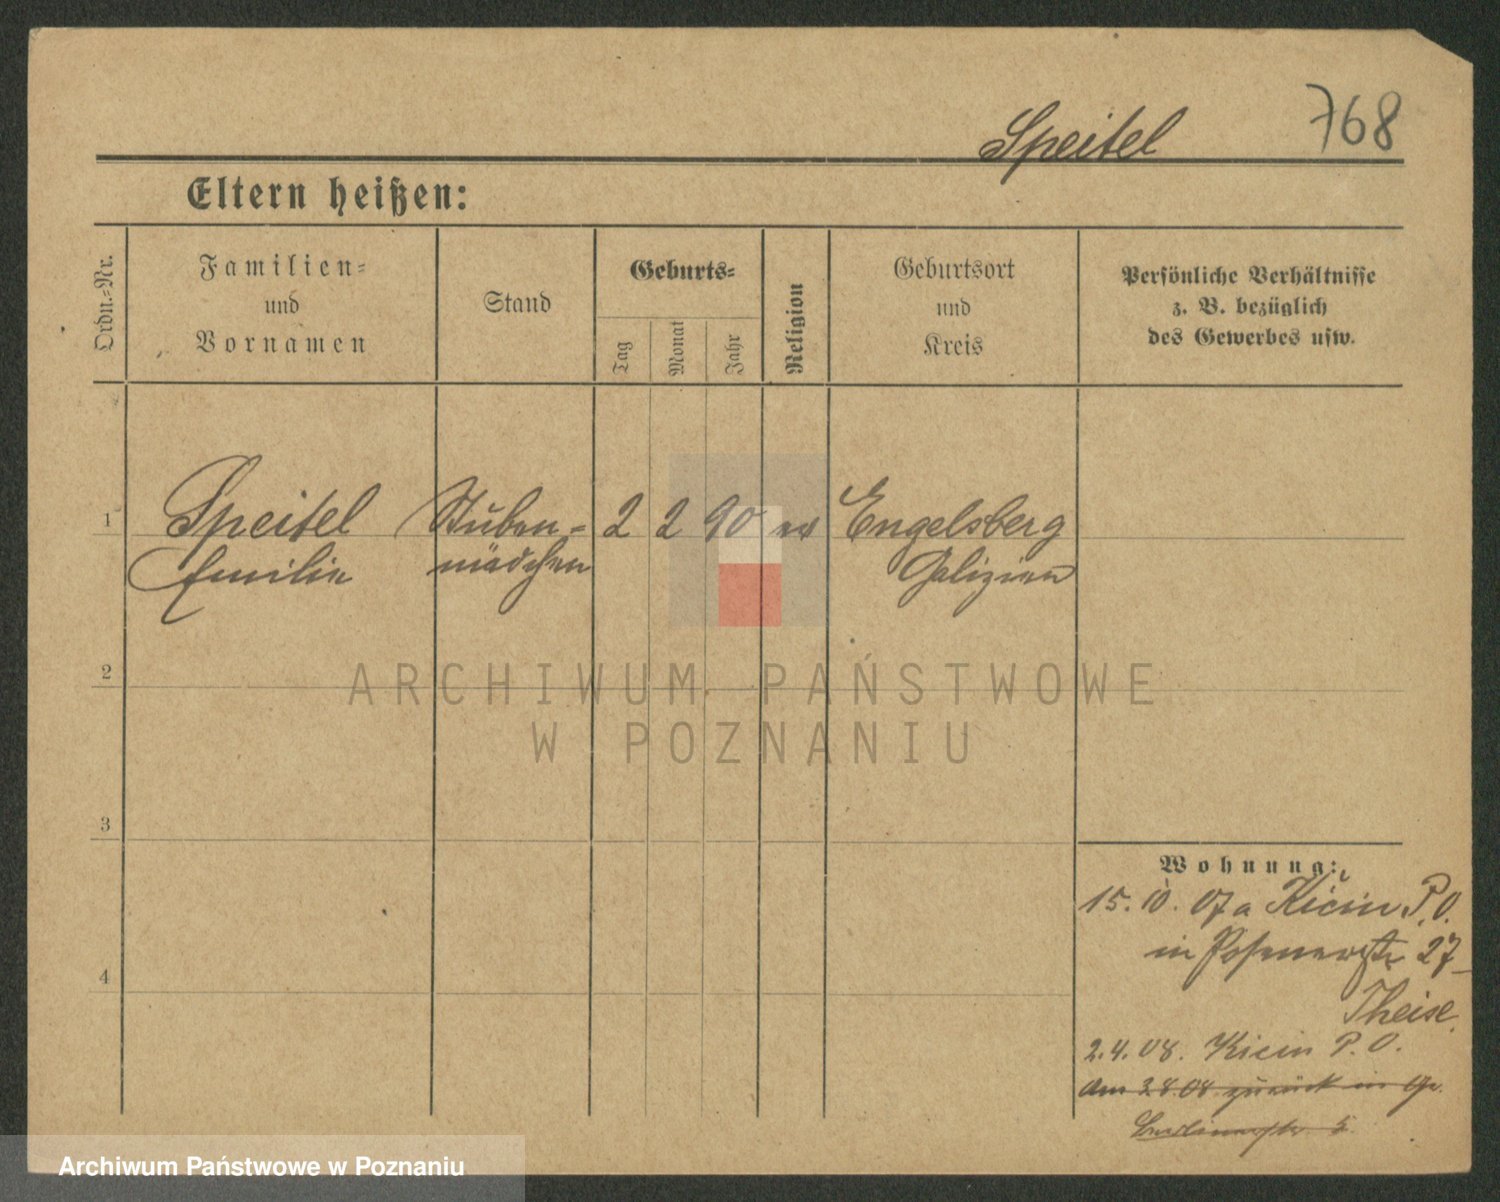 Speitel 768
Eltern heißen:
Ordn.-Nr.
Familien-
und
Vornamen
Stand
Geburts-
Tag
Monat
Jahr
Religion
Geburtsort
und
Kreis
Persönliche Verhältnisse
z. B. bezüglich
des Gewerbes usw.
1 Speitel Stuben- 2 2 90 ev Engelsberg
Emilie mädchen Galizien
2
ARCHIWUM PAŃSTWOWE
W POZNANIU
3
Wohnung:
15. 10. 07 a Kicin P. O.
in Posenerstr 27
Theise
4
2.4.08. Kicin P. O.
Am 3.8.08 zurück in
5
Archiwum Państwowe w Poznaniu